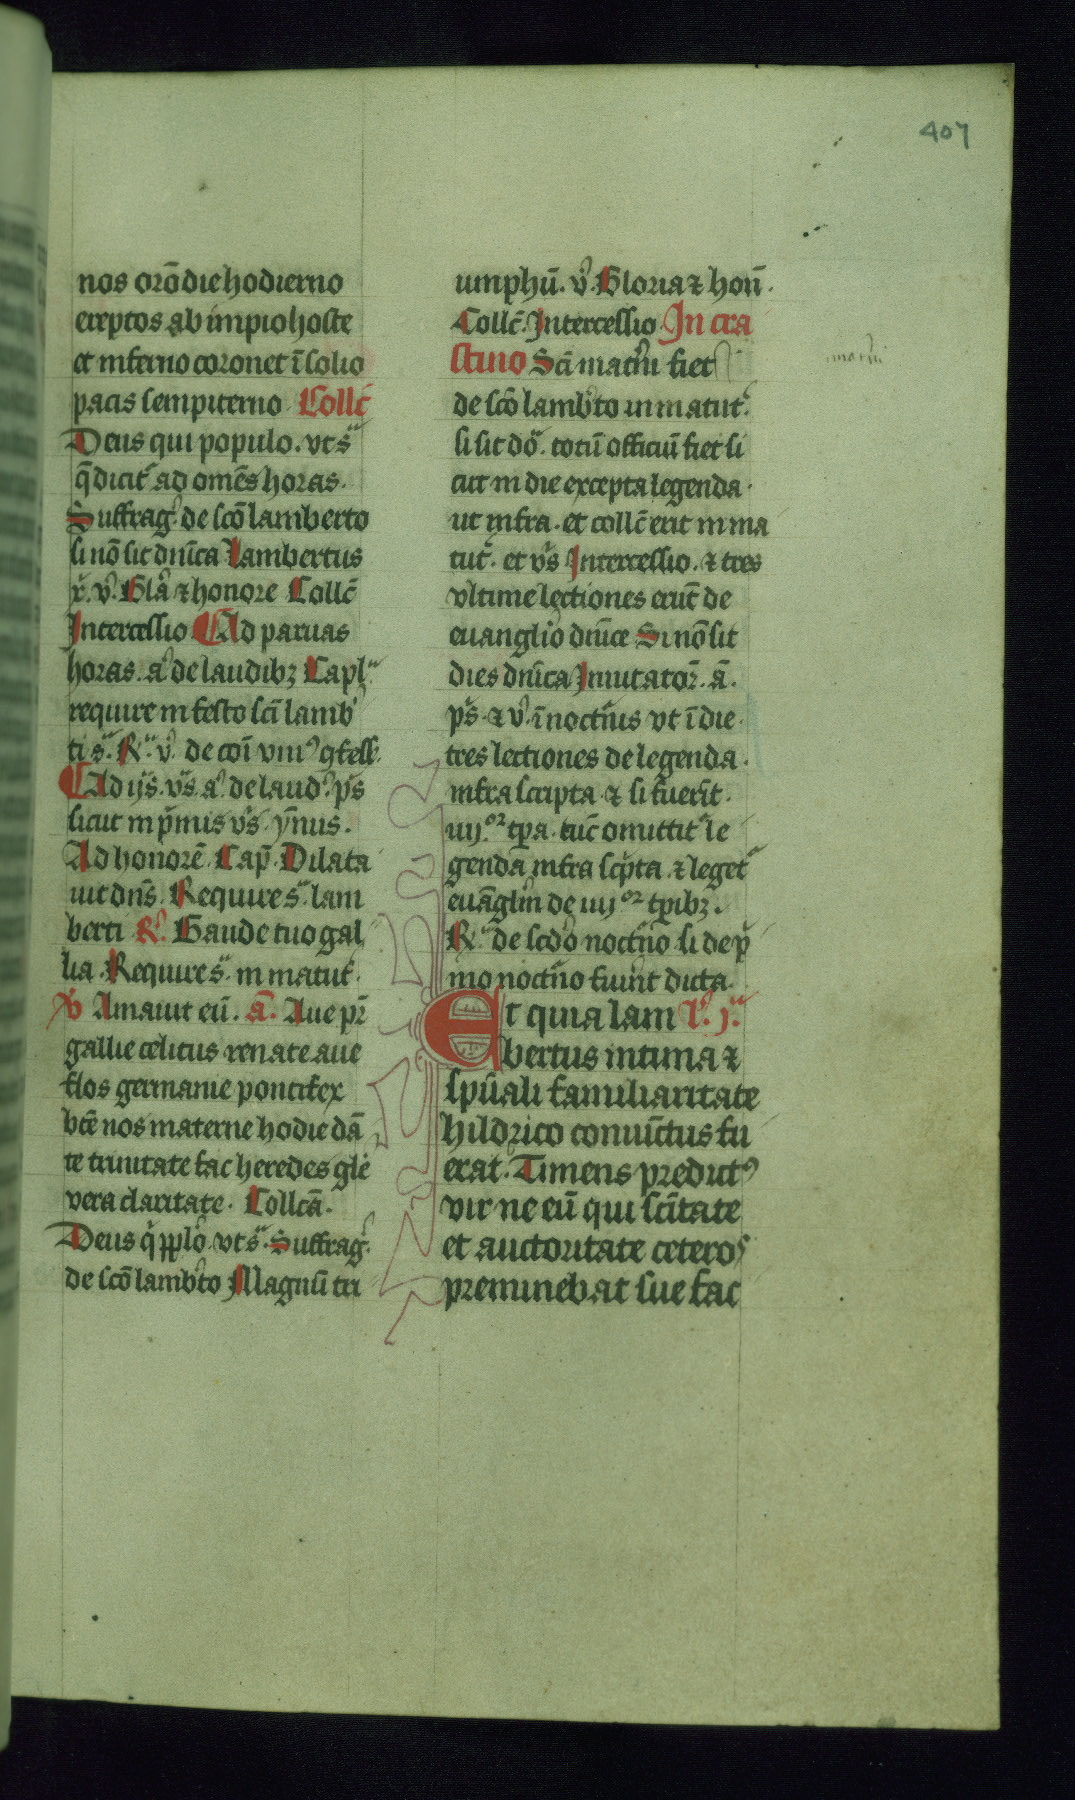 407
nos orō die hodierno
ereptos ab impio hoste
et inferno coronet ī solio
pacis sempiterno Collc̄
Deus qui populo . vt sͣ
q̄ dicit᷑ ad omēs horas .
Suffrag᷑ de scō lamberto
si nō sit dnīca Lambertus
v᷑. Glā ⁊ honore Collc̄
Intercessio Ad paruas
horas . aͣ de laudibꝫ Capl᷑
require in festo scī lamb
ti sͣ. R᷑ v᷑ de cōi vniꝰ ꝯfess᷑
Ad ijͣs vͣs aͣ de laud᷑ pͣs
sicut in p̄mis v᷑s . ymnus .
Ad honorē Cap̄ Dilata
uit dn̄s . Require sͣ lam
berti R᷑ Gaude tuo gal
lia . Require sͣ in matut᷑
v᷑ Amauit eū . ā. Aue pr̄
gallie celitus renate aue
flos germanie pontifex
btē nos materne hodie dā
te trinitate fac heredes glē
vera claritate . Collcā .
Deus q̇ pplō . vt sͣ Suffrag᷑
de scō lamb᷑to Magnū tri
umphū . v᷑ Gloria ⁊ hon̄ .
Collc̄ . Intercessio In cra
stino Scī mat᷑ni fiet
de scō lamb᷑to in matut᷑ .
si sit do᷑ . totū officiū fiet si
cut in die excepta legenda .
ut infra . et collc̄ erit in ma
tut᷑ . et v᷑s Intercessio . ⁊ tres
vltime lectiones erūt de
euanglio dnīce Si nō sit
dies dnīca Inuitator̄ . ā .
pͣs ⁊ v᷑ . ī noct᷑nis vt ī die .
tres lectiones de legenda .
infra scripta . ⁊ si fuerīt .
iiijᵒʳ tp̄a . tūc omittit᷑ le
genda infra sc̄pta . ⁊ leget᷑
euāgliū de iiijᵒʳ tp̄ibꝫ .
R᷑ de scdō noct᷑no si de p̄
mo noct᷑no fuīnt dicta .
Et quia lam l᷑. jͣ.
bertus intima ⁊
spūali familiaritate
hildrico conuīctus fu
erat . Timens predictꝰ
vir ne eū qui scītate
et auctoritate ceteros
preminebat sue fac